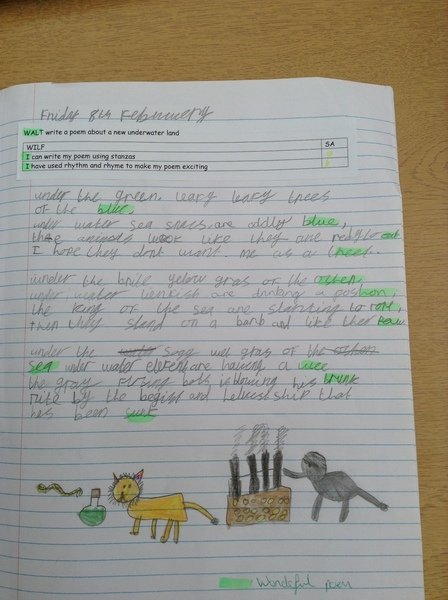 Friday 8th Februuery
WALT write a poem about a new underwater land
WILF SA
I can write my poem using stanzas
I have used rhythm and rhyme to make my poem exciting
under the green, leafy leafy trees
of the blue,
under water sea snacs are oddly blue,
the animols look like they are redy to eat
I hope they dont want me as a treet.
under the brite yelow gras of the
under water are drinking a poshon,
the king of the sea are starting to rore,
then they stand on a bomb and like ther
under the sogg wet gras of the
sea under water elefent are having a wee
the gray rising bots is blowing his trunk
rite by the bigist and ship that
has been sunk
Wonderful poem